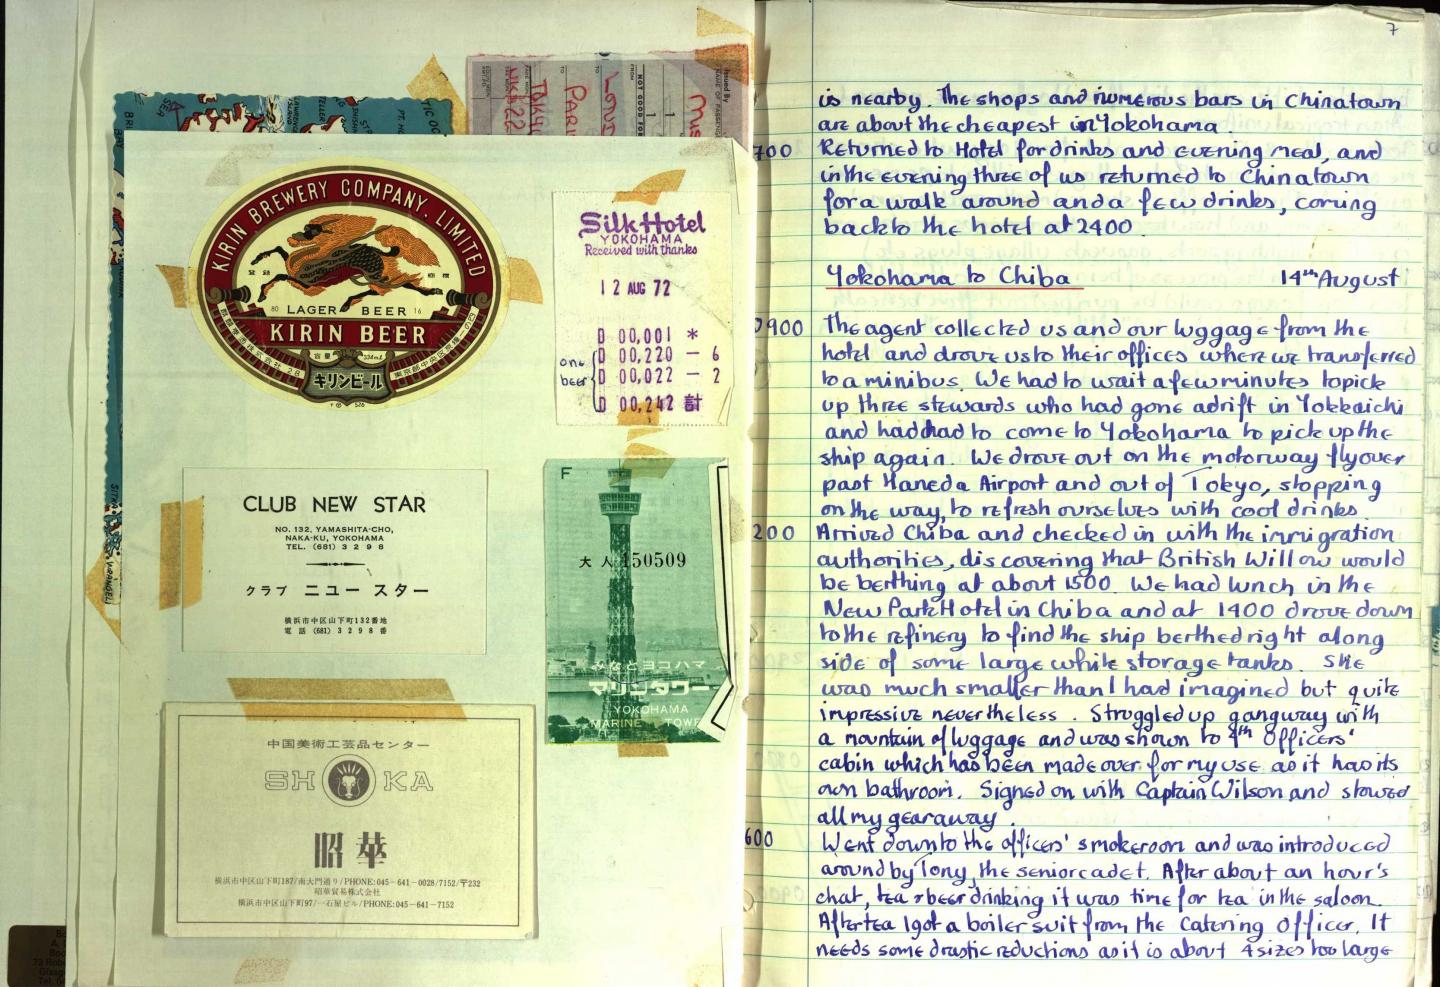 KIRIN BREWERY COMPANY, LIMITED
登録 商標
80 LAGER BEER 16
KIRIN BEER
容量 334ml
キリンビール
526
Silk Hotel
YOKOHAMA
Received with thanks
12 AUG 72
D 00,001 *
D 00,220 — 6
D 00,022 — 2
D 00,242 計
one
beer
CLUB NEW STAR
NO. 132, YAMASHITA-CHO,
NAKA-KU, YOKOHAMA
TEL. (681) 3298
クラブ ニュー スター
横浜市中区山下町132番地
電話 (681) 3298番
F
大人 150509
みなとヨコハマ
マリンタワー
YOKOHAMA
MARINE TOWE
中国美術工芸品センター
SHOKA
昭華
横浜市中区山下町187/南大門通り/PHONE:045-641-0028/7152/〒232
昭華貿易株式会社
横浜市中区山下町97/一石屋ビル/PHONE:045-641-7152
7
is nearby. The shops and numerous bars in Chinatown
are about the cheapest in Yokohama.
700 Returned to Hotel for drinks and evening meal, and
in the evening three of us returned to Chinatown
for a walk around and a few drinks, coming
back to the hotel at 2400.
Yokohama to Chiba 14th August
0900 The agent collected us and our luggage from the
hotel and drove us to their offices where we transferred
to a minibus. We had to wait a few minutes to pick
up three stewards who had gone adrift in Yokkaichi
and had had to come to Yokohama to pick up the
ship again. We drove out on the motorway flyover
past Haneda Airport and out of Tokyo, stopping
on the way, to refresh ourselves with cool drinks.
200 Arrived Chiba and checked in with the immigration
authorities, discovering that British Willow would
be berthing at about 1500. We had lunch in the
New Park Hotel in Chiba and at 1400 drove down
to the refinery to find the ship berthed right along
side of some large white storage tanks. She
was much smaller than I had imagined but quite
impressive nevertheless. Struggled up gangway with
a mountain of luggage and was shown to 4th Officers'
cabin which has been made over for my use as it has its
own bathroom. Signed on with Captain Wilson and stowed
all my gear away.
600 Went down to the officers' smokeroom and was introduced
around by Tony, the senior cadet. After about an hour's
chat, tea & beer drinking it was time for tea in the saloon.
After tea I got a boiler suit from the Catering Officer. It
needs some drastic reductions as it is about 4 sizes too large